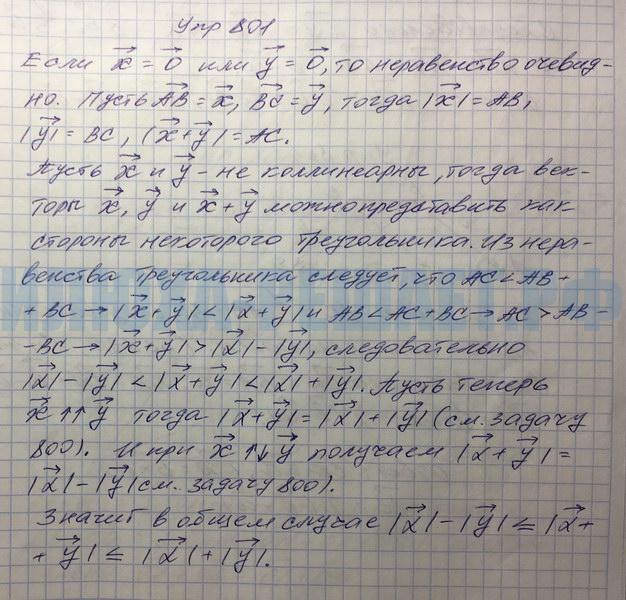 Упр 801
Если x⃗ = 0⃗ или y⃗ = 0⃗, то неравенство очевид-
но. Пусть AB⃗ = x⃗, BC⃗ = y⃗, тогда |x⃗| = AB,
|y⃗| = BC, |x⃗+y⃗| = AC.
Пусть x⃗ и y⃗ - не коллинеарны, тогда век-
торы x⃗, y⃗ и x⃗+y⃗ можно представить как
стороны некоторого треугольника. Из нера-
венства треугольника следует, что AC < AB +
+ BC → |x⃗+y⃗| < |x⃗+y⃗| и AB < AC + BC → AC > AB -
- BC → |x⃗+y⃗| > |x⃗| - |y⃗|, следовательно
|x⃗| - |y⃗| < |x⃗+y⃗| < |x⃗| + |y⃗|. Пусть теперь
x⃗ ↑↑ y⃗ тогда |x⃗+y⃗| = |x⃗| + |y⃗| (см. задачу
800). И при x⃗ ↑↓ y⃗ получаем |x⃗+y⃗| =
|x⃗| - |y⃗| (см. задачу 800).
Значит в общем случае |x⃗| - |y⃗| ≤ |x⃗+
+ y⃗| ≤ |x⃗| + |y⃗|.